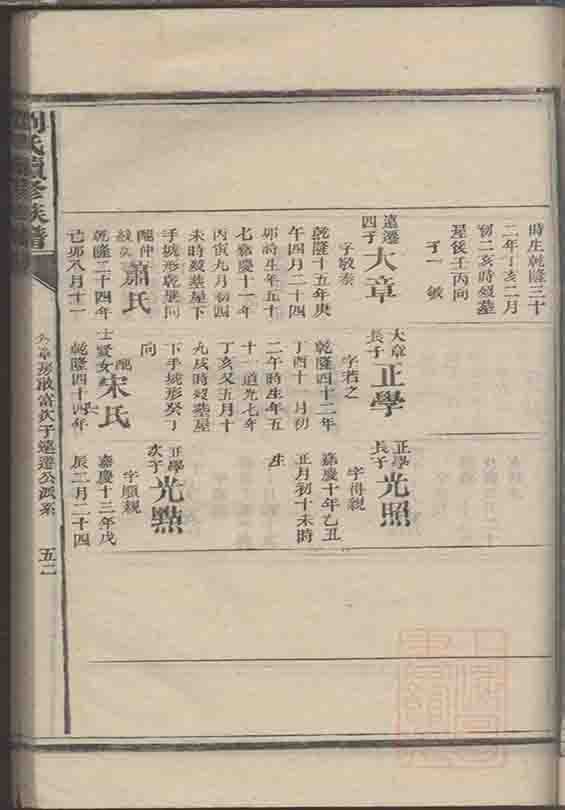 時生乾隆三十
二年丁亥二月
初二亥時歿墓
屋後壬丙向
子一 敏
遠遷
四子
大章
字敬泰
乾隆十五年庚
午四月二十四
卯時生年五十
七嘉慶十一年
丙寅九月初四
未時歿墓屋下
手城形乾巽向
配仲
蕭氏
乾隆二十四年
己卯八月十一
大章
長子
正學
字若之
乾隆四十二年
丁酉十月初
二午時生年五
十一道光七年
丁亥又五月十
九戌時歿墓屋
下手城形癸丁
向
配
士賢女
宋氏
乾隆四十四年
正學
長子
光照
字得親
嘉慶十年乙丑
正月初十未時
生
正學
次子
光點
字順親
嘉慶十三年戊
辰二月二十四
劉氏續修族譜
章房敢當欽子遠遷公派系
五二